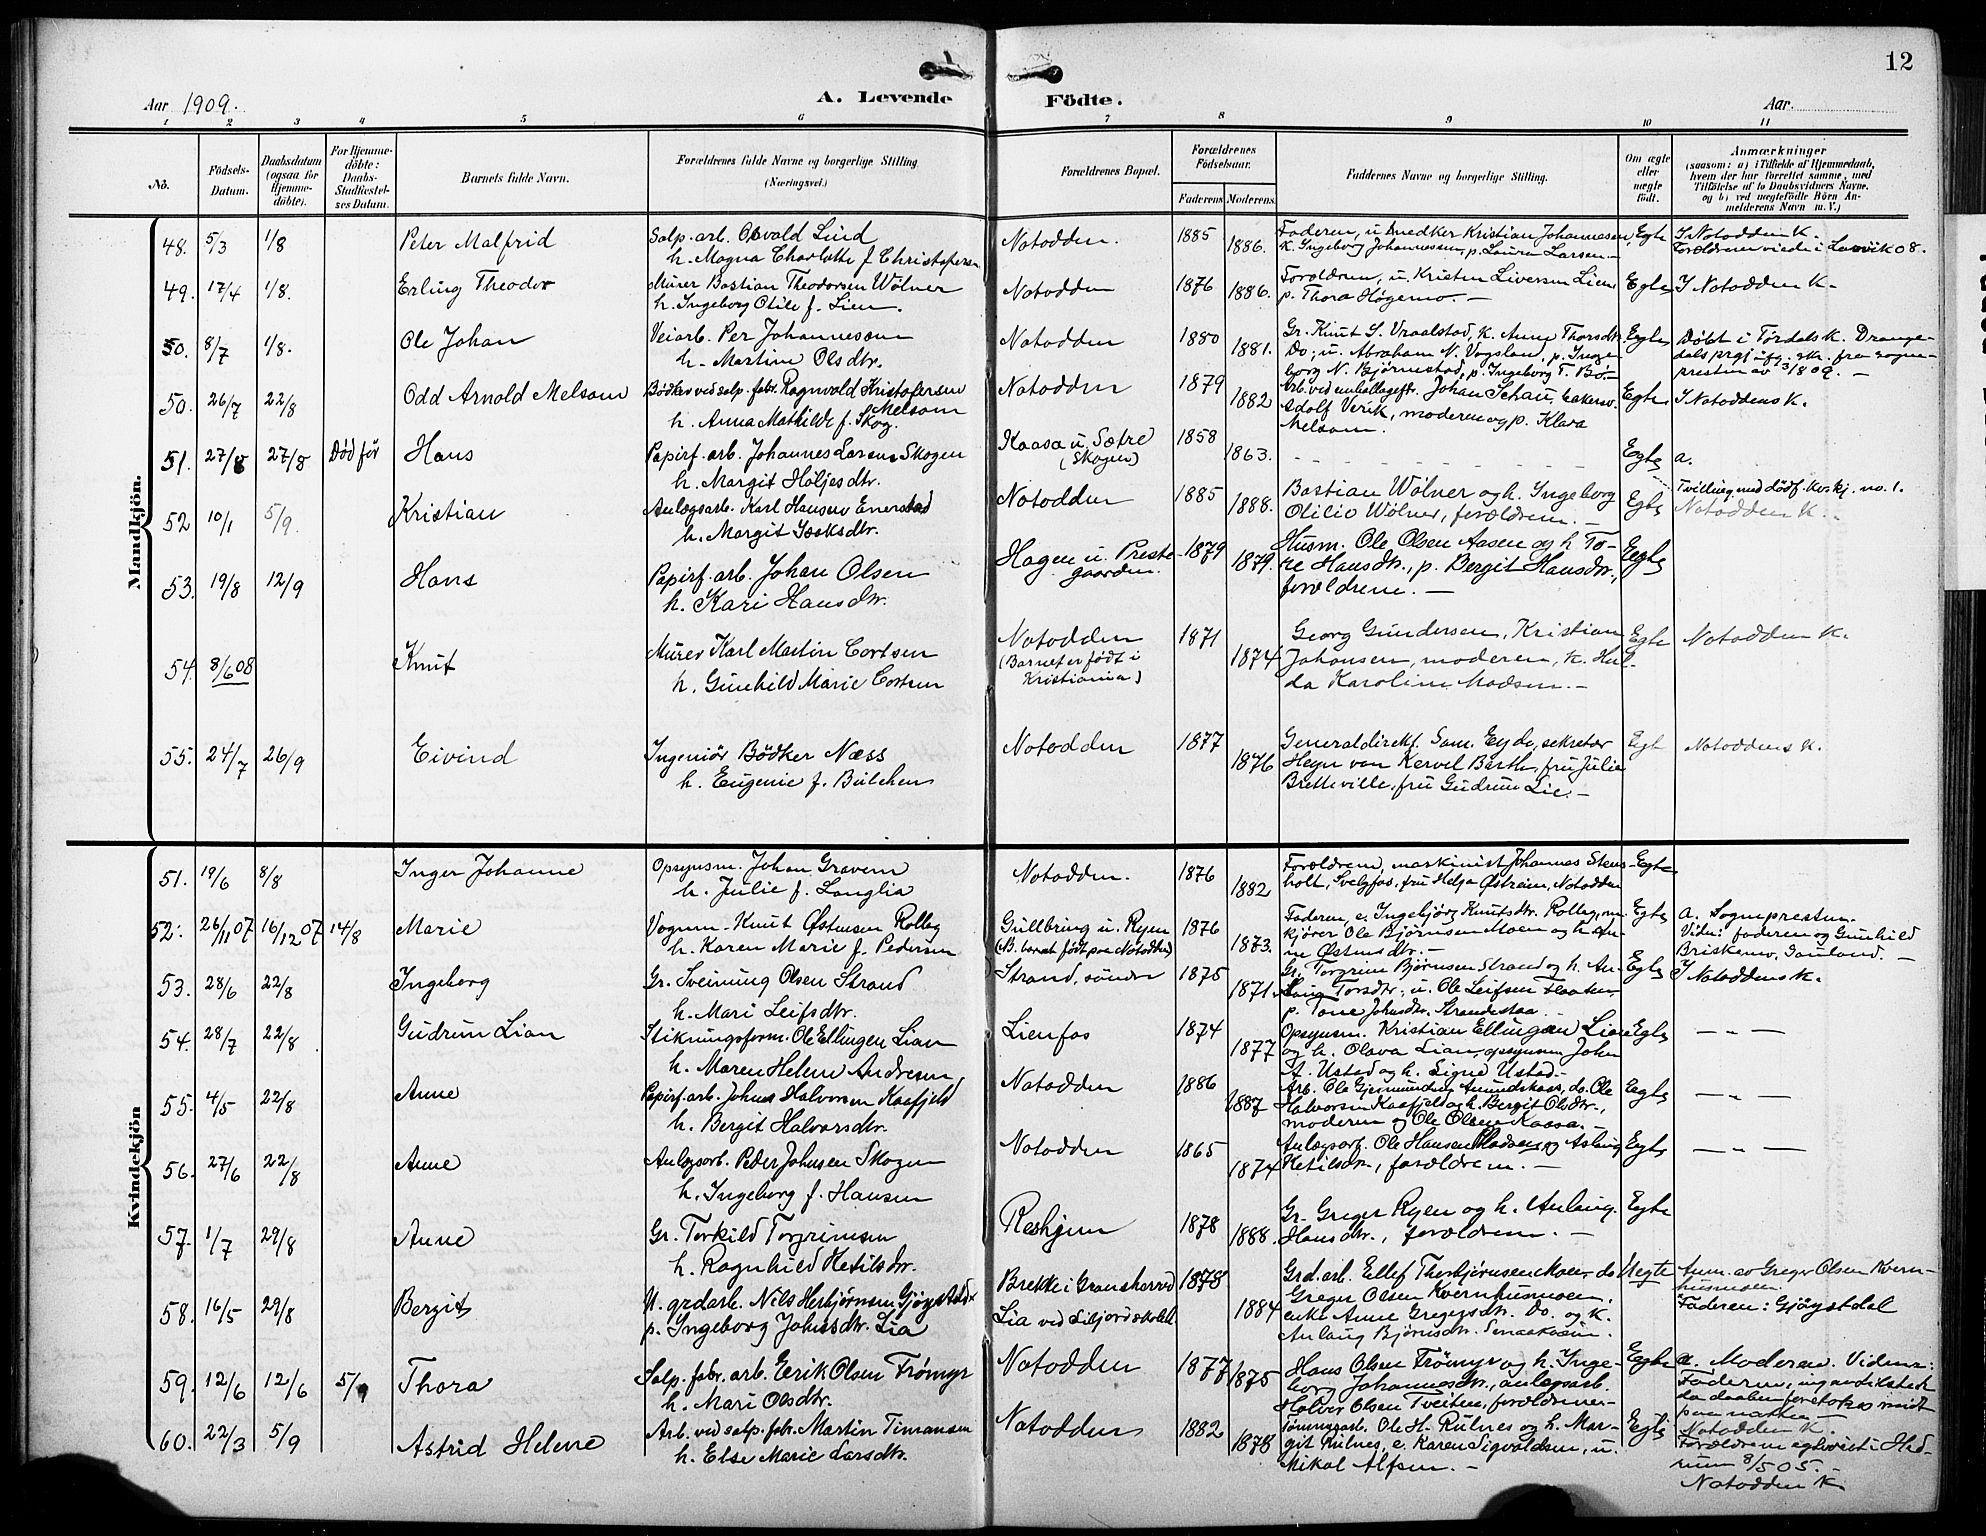 12
Aar 1909.
A. Levende Födte.
Aar
1 2 3 4 5 6 7 8 9 10 11
No.
Födsels-Datum.
Daabsdatum (ogsaa for Hjemme-döbte).
For Hjemme-döbte: Daabs-Stadfæstel-ses Datum.
Barnets fulde Navn.
Forældrenes fulde Navne og borgerlige Stilling.
(Næringsvei.)
Forældrenes Bopæl.
Forældrenes Födselsaar.
Faderens Moderens.
Faddernes Navne og borgerlige Stilling.
Om ægte eller uægte födt.
Anmærkninger
(saasom: a) i Tilfælde af Hjemmedaab,
hvem der har forrettet samme, med
Tilföielse af to Daabsvidners Navne.
og b) ved uægtefödte Börn An-
melderens Navn m. V.)
Mandkjön.
48. 5/3 1/8 Peter Malfrid
Salp. arb. Osvald Lind
h. Magna Charlotte f. Christofersen
Notodden. 1885 1886.
Faderen, u. snedker Kristian Johannesen,
k. Ingeborg Johannesen, p. Laura Larsen —
Egte
I Notodden K.
Forældrene viede i Larvik 08.
49. 17/4 1/8. Erling Theodor
Murer Bastian Theodorsen Wölner
h. Ingeborg Otilie f. Lien.
Notodden 1876 1886.
Forældrene, u. Kristen Liversen Lien,
p. Thora Høgemo. —
Egte I Notodden K. —
50. 8/7 1/8. Ole Johan
Veiarb. Per Johannessen
h. Martine Olsdtr.
Notodden 1880 1881.
Gr. Knut S. Vraalstad, k. Anne Thorsdtr.
Do, u. Abraham N. Vogsland, p. Inge-
borg N. Bjørnestad, p. Ingeborg T. Bø. —
Egte
Døbt i Tørdals K. Drange-
dals prgj. ifg. skr. fra sogne-
presten av /8 09. —
50. 26/7 22/8 Odd Arnold Melsom
Bødker ved salp. fabr. Ragnvald Kristofersen Melsom
h. Anna Mathilde f. Skog.
Notodden 1879 1882
Arb. ved emballagefr. Johan Schau,
Adolf Verik, moderen og p. Klara
Melsom.
Egte I Notoddens K.
51. 27/8 27/8 Død før Hans
Papirf. arb. Johannes Larsen Skogen
h. Margit Høljesdtr.
Kaasa u. Sætre
(Skogen)
1858 1863. Egte a.
52 10/1 5/9. Kristian
Anlægsarb. Karl Hansen Enerstad
h. Margit Isaksdtr.
Notodden 1885 1888.
Bastian Wölner og h. Ingeborg
Otilie Wölner, forældrene. —
Egte
Tvilling med dødf. kvkj. no. 1.
Notodden K.
53. 19/8 12/9 Hans
Papirf. arb. Johan Olsen
h. Kari Hansdtr.
Hagen u. Preste-
gaarden.
1879 1879.
Husm. Ole Olsen Aasen og h. To-
re Hansdtr., p. Bergit Hansdtr.,
forældrene. —
Egte
54. 8/6 08 Knut
Murer Karl Martin Cortsen
h. Gunhild Marie Cortsen
Notodden
(Barnet er født i
Kristiania)
1871 1874
Georg Gundersen, Kristian
Johansen, moderen, k. Hul-
da Karoline Madsen. —
Egte Notodden K.
55. 24/7 26/9 Eivind
Ingeniør Bødker Næss
h. Eugenie f. Butchen
Notodden 1877 1876
Generaldirekt. Sam. Eyde, sekretær
Heyer van Kervel Barth, fru Julie
Bretteville, fru Gudrun Lie. —
Egte Notoddens K.
Kvindekjön
51. 19/6 8/8 Inger Johanne
Opsynsm. Johan Gravem
h. Julie f. Langlia
Notodden. 1876 1882
Forældrene, maskinist Johannes Stens-
holt, Svelgfos, fru Helga Østreim, Notodden
Egte
52. 26/11 07 16/12 07 14/8 Marie
Vognm. Knut Østensen Rollag
h. Karen Marie f. Pedersen
Gullbring u. Ryen
(B. barnet født paa Notodden)
1876 1873.
Faderen, e. Ingebjørg Knutsdtr. Rollag, m
kjører Ole Bjørnsen Moen og h. An-
ne Østensdtr. —
Egte
a. Sognepresten.
Vidn: faderen og Gunhild
Briskemo, Sauland. —
53. 28/6 22/8 Ingeborg
Gr. Sveinung Olsen Strand
h. Mari Leifsdtr.
Strand, søndre 1875 1871.
Gr. Torgrim Bjørnsen Strand og h. An-
laug Torsdtr., u. Ole Leifsen Flaaten,
p. Tone Johnsdtr. Strandestaa. —
Egte I Notoddens K.
54. 28/7 22/8 Gudrun Lian
Stikningsform. Ole Ellingsen Lian
h. Maren Helene Andresen
Lienfos 1874 1877
Opsynsm. Kristian Ellingsen Lian
og h. Olava Lian, opsynsm. Johan
A. Ustad og h. Signe Ustad. —
Egte — „ —
55. 4/5 22/8 Anne
Papirf. arb. Johns Halvorsen Kaafjeld
h. Bergit Halvorsdtr.
Notodden 1886 1887
Arb. Ole Gjermundsen Amundskaas, do. Ole
Halvorsen Kaafjeld og h. Bergit Olsdtr.,
moderen og Ole Olsen Kaasa. —
Egte — „ —
56. 27/6 22/8 Anne
Anlægsarb. Peder Johnsen Skogen
h. Ingeborg f. Hansen
Notodden 1865 1874
Anlægsarb. Ole Hansen og Aslaug
Ketilsdtr., forældrene. —
Egte — „ —
57. 1/7 29/8 Anne
Gr. Torkild Torgrimsen
h. Ragnhild Ketilsdtr.
Reshjem 1878 1888.
Gr. Greger Ryen og h. Anlaug
Hansdtr., forældrene. —
Egte
58. 16/5 29/8 Bergit
U. grdarb. Nils Herbjørnsen Gjøystdal
p. Ingeborg Johnsdtr. Lia
Brekke i Gransherred
Lia ved Lifjord skolekr.
1878 1884
Grd. arb. Ellef Thorbjørnsen Moen, do
Greger Olsen Kvernhusmoen,
enke Anne Gregersdtr. Do. og k.
Anlaug Bjørnsdtr.
Uegte
Anm. av Greger Olsen Kvern-
husmoen.
Faderen: Gjøystdal
59. 12/6 12/6 5/9 Thora
Salp. fabr. arb. Eerik Olsen Frømyr
h. Mari Olsdtr.
Notodden 1877 1875
Hans Olsen Frömyr og h. Inge-
borg Johannesdtr., anlægsarb.
Halvor Olsen Tveiten, forældrene. —
Egte
a. Moderen. Vidne:
Faderen, ingen tilstede
da daaben foretokes midt
paa natten. —
Notodden K.
60. 22/3 5/9 Astrid Helene
Arb. ved salp. fabr. Martin Timansen
h. Else Marie Larsdtr.
Notodden 1882 1878
Tømmerarb. Ole H. Rulnes og h. Mar-
git Rulnes, e. Karen Sigvaldsen, u.
Mikal Alfsen. —
Egte
Forældrene egteviet i Hed-
rum 8/5 05. —
Notodden K.